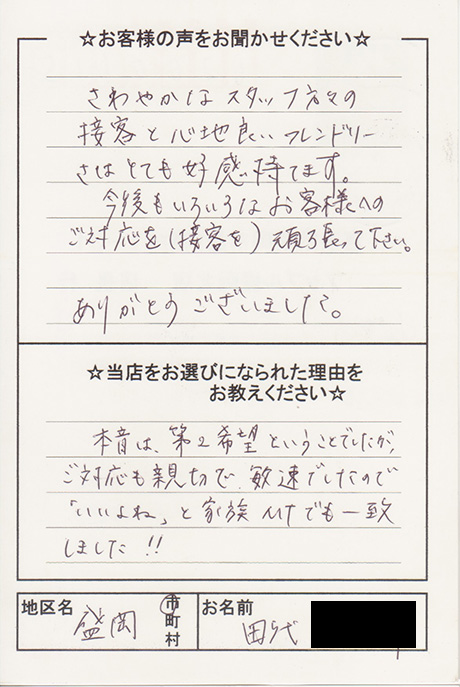 ☆お客様の声をお聞かせください☆
さわやかなスタッフ方々の
接客と心地良いフレンドリー
さはとても好感持てます。
今後もいろいろなお客様への
ご対応を(接客を)頑張って下さい。
ありがとうございました。
☆当店をお選びになられた理由を
お教えください☆
本音は、第2希望ということでしたが、
ご対応も親切で、敏速でしたので
「いいよね」と家族内でも一致
しました!!
地区名 盛岡 市町村 お名前 田代